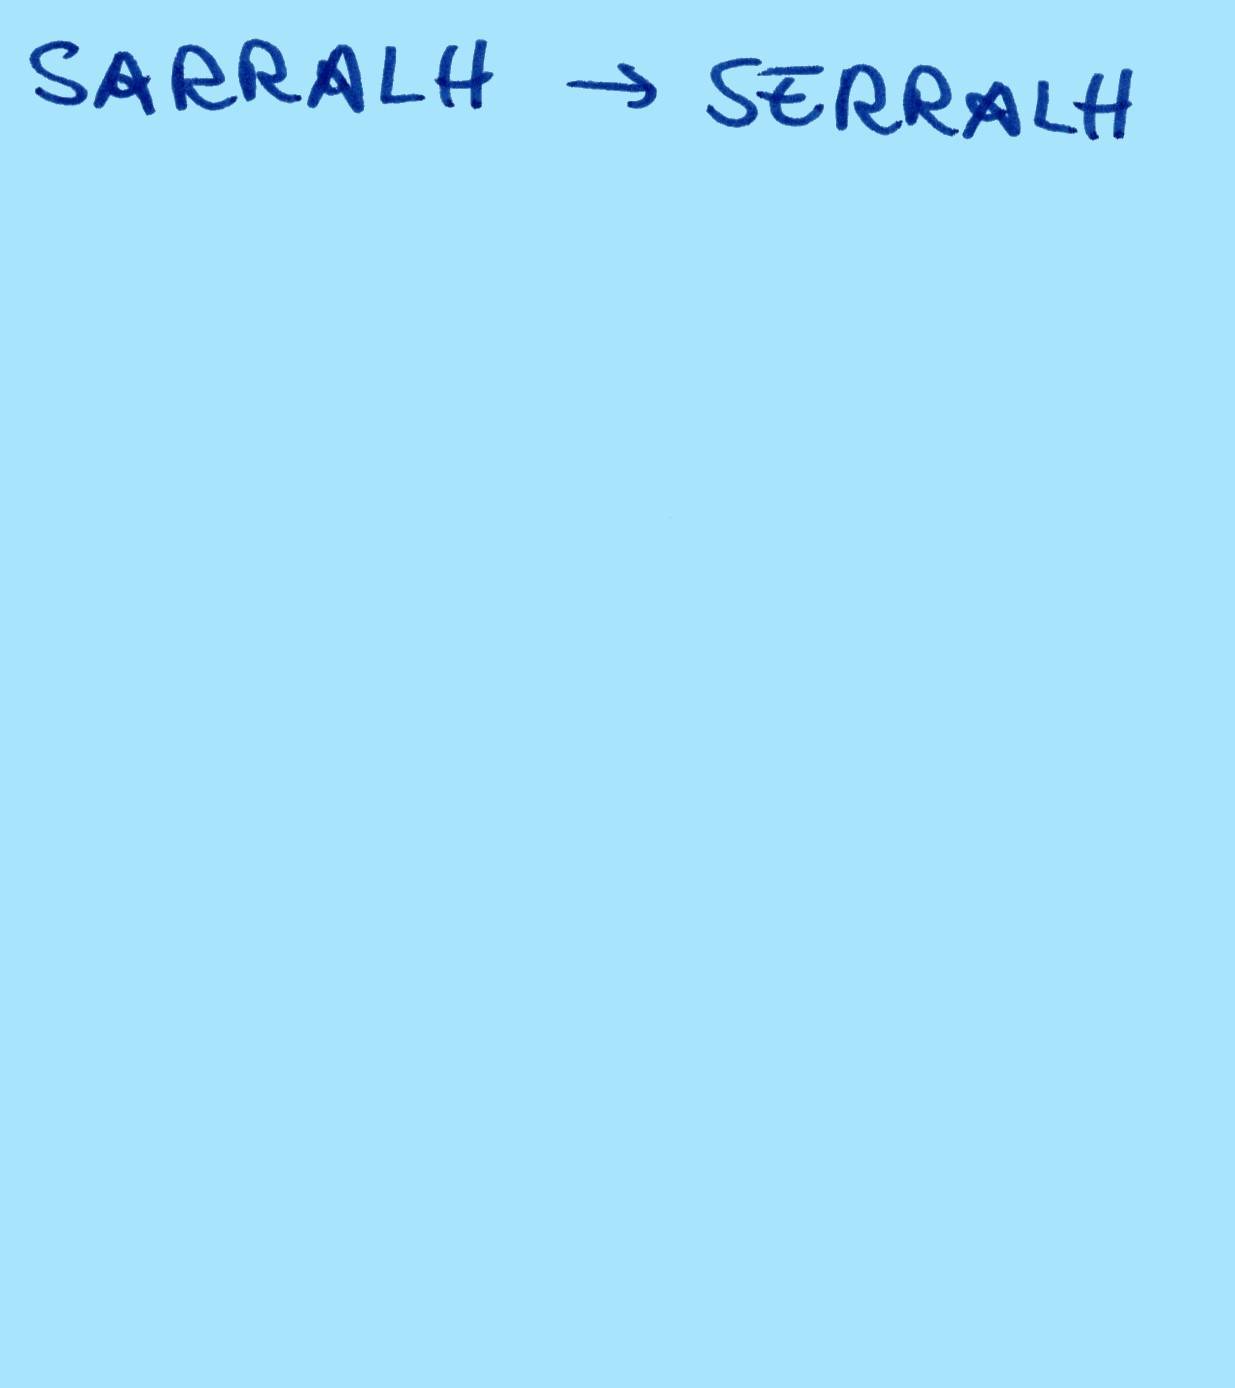 SARRALH → SERRALH